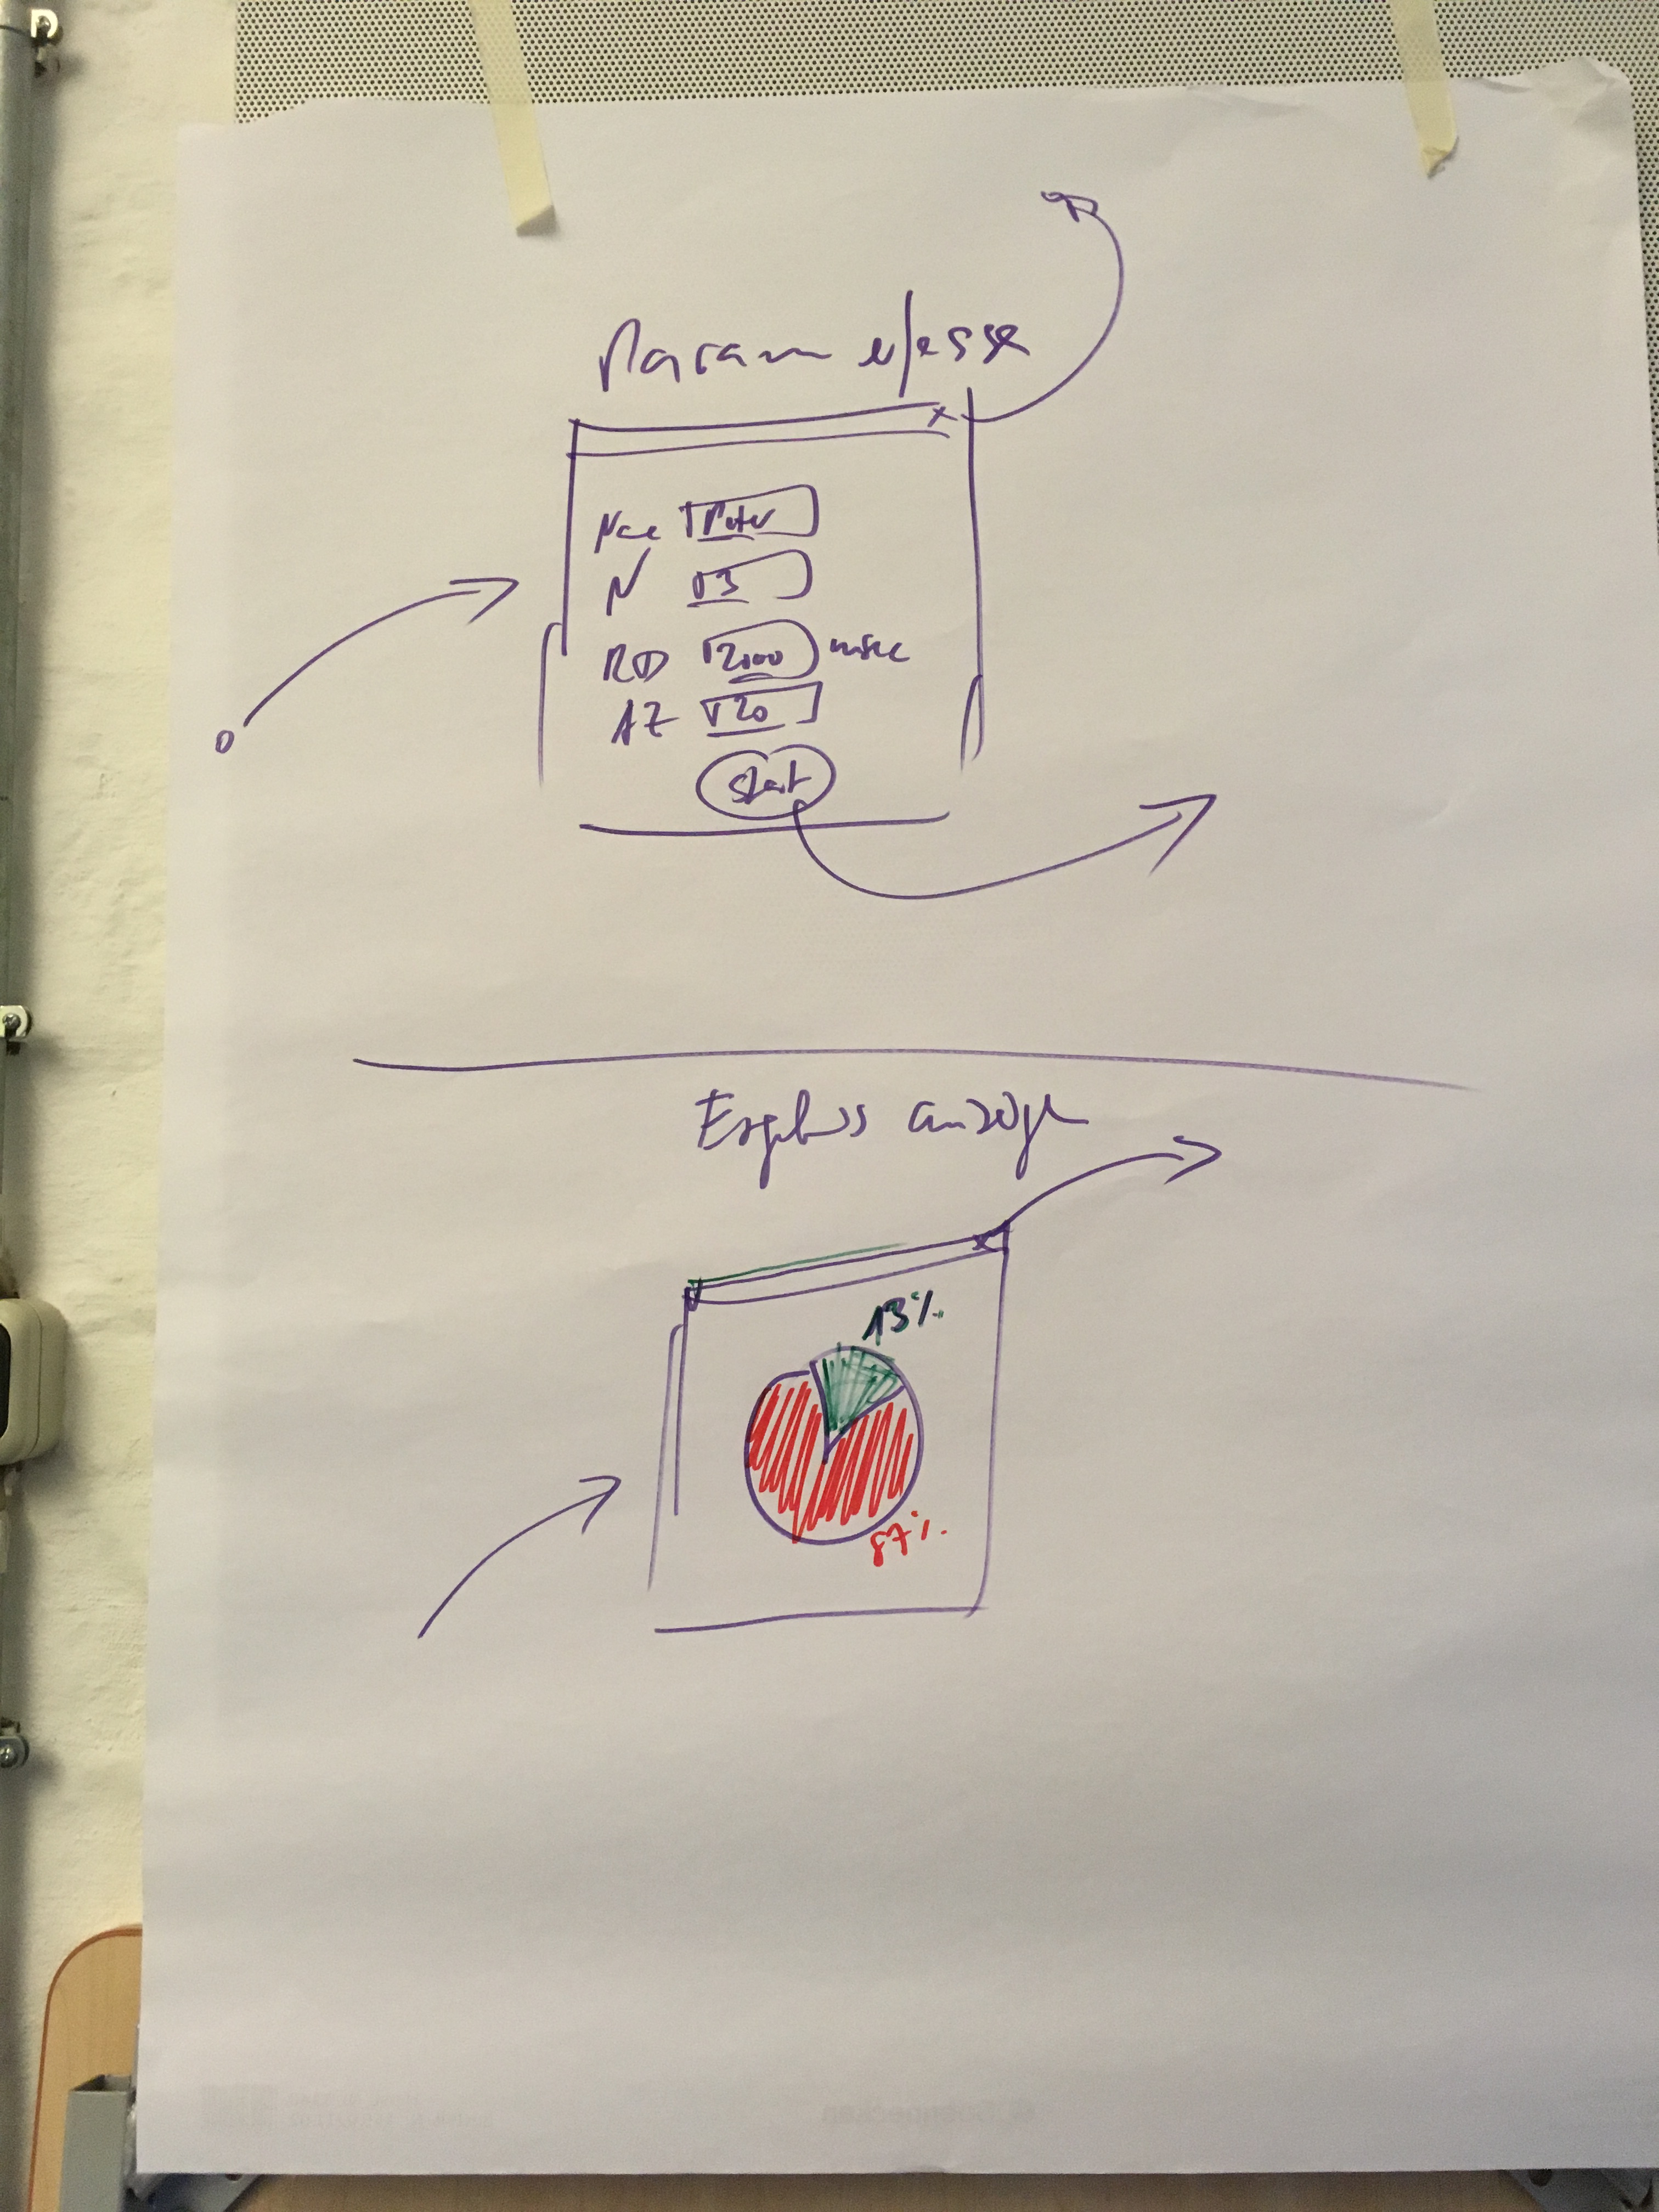 Param erfasse
x
Name Peter
N 3
RD 2000 msec
AZ 20
Start
Ergebnis anzeigen
x
13%
87%